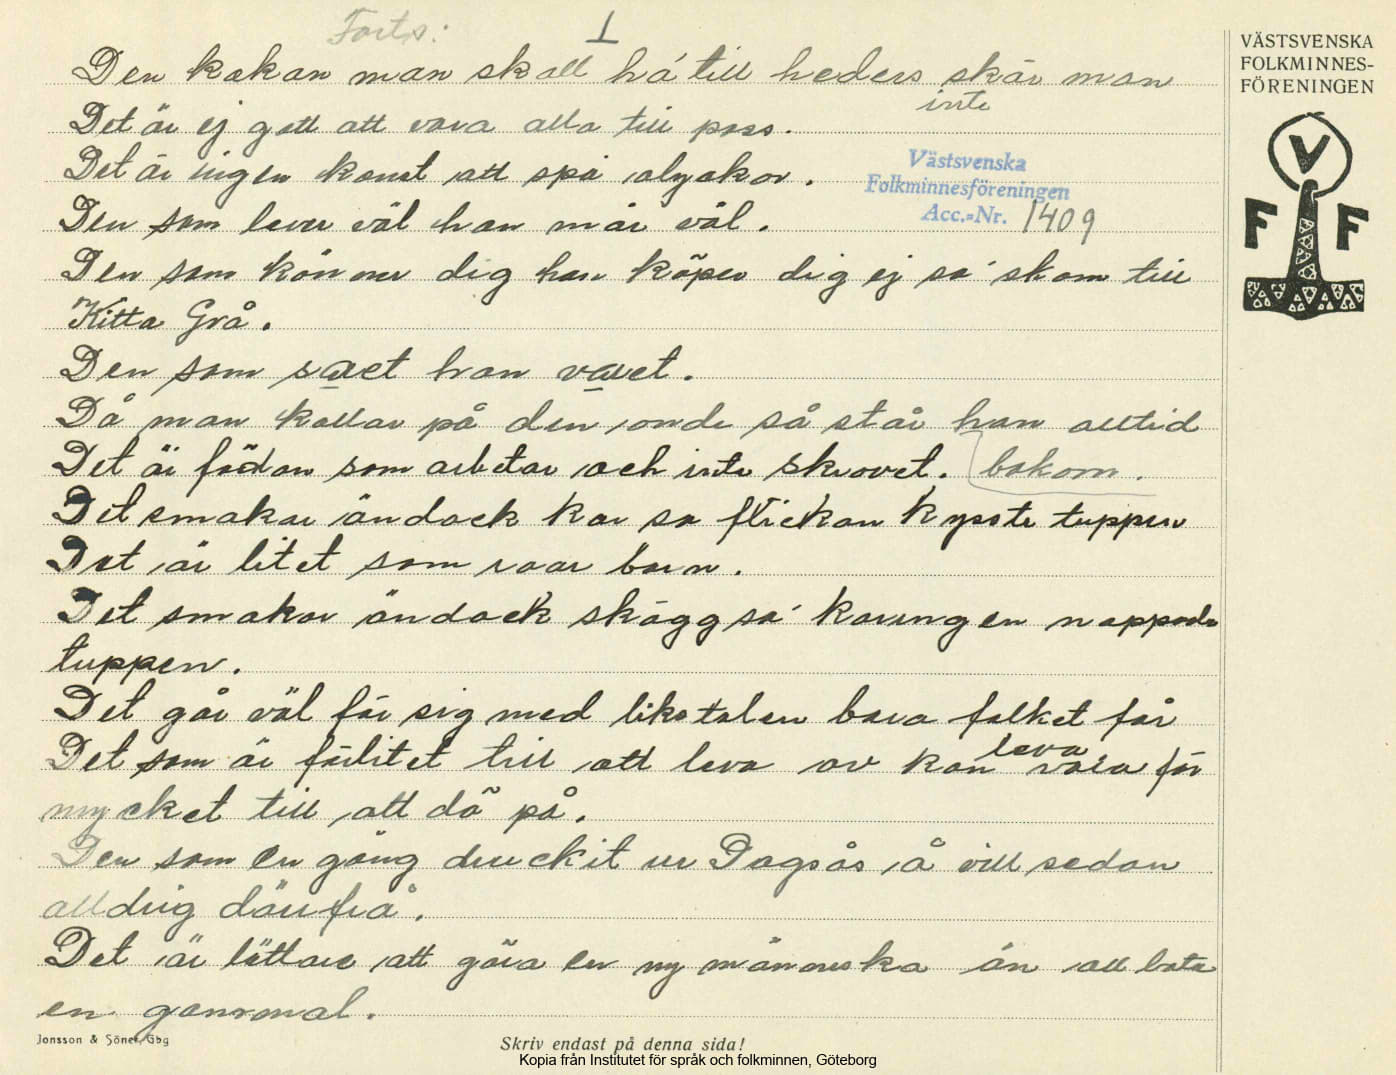 Forts: 1
VÄSTSVENSKA
FOLKMINNES-
FÖRENINGEN
Den kakan man skall hå till heders skär man
inte
Det är ej gott att vara alla till pass.
Det är ingen konst att spå olyckor.
Västsvenska
Folkminnesföreningen
Acc.-Nr. 1409
V
F F
Den som lever väl han mår väl.
Den som känner dig han köper dig ej så' skom till
Kitta Grå.
Den som saet han vauet.
Då man kallar på den onde så står han alltid
bakom.
Det är födan som arbetar och inte skrovet.
Det smakar ändock kar sa flickan kysste tuppen
Det är litet som roar barn.
Det smakar ändock skägg så' karingen nappade
tuppen.
Det går väl för sig med likstolen bara folket får
leva
Det som är förlitet till att leva av kan vara för
mycket till att dö på.
Den som en gång druckit ur Dagsås å vill sedan
alldrig därifrå.
Det är lättare att göra en ny människa än att bota
en gammal.
Jonsson & Söner, Gbg
Skriv endast på denna sida!
Kopia från Institutet för språk och folkminnen, Göteborg